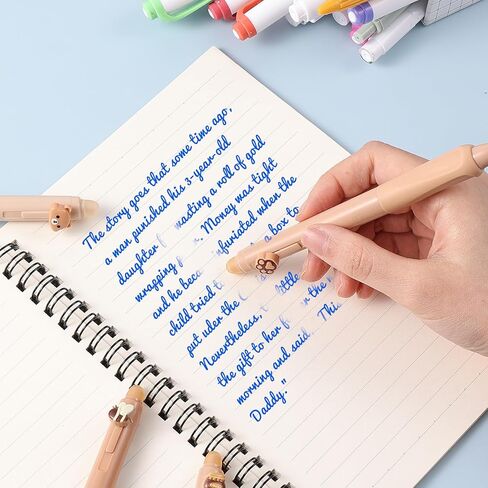 The story goes that some time ago,
a man punished his 3-year-old
daughter wasting a roll of gold
wrapping Money was tight
and he infuriated when the
child tried a box to
put uder the
Nevertheless, little
the gift to her the
morning and said, This
Daddy."